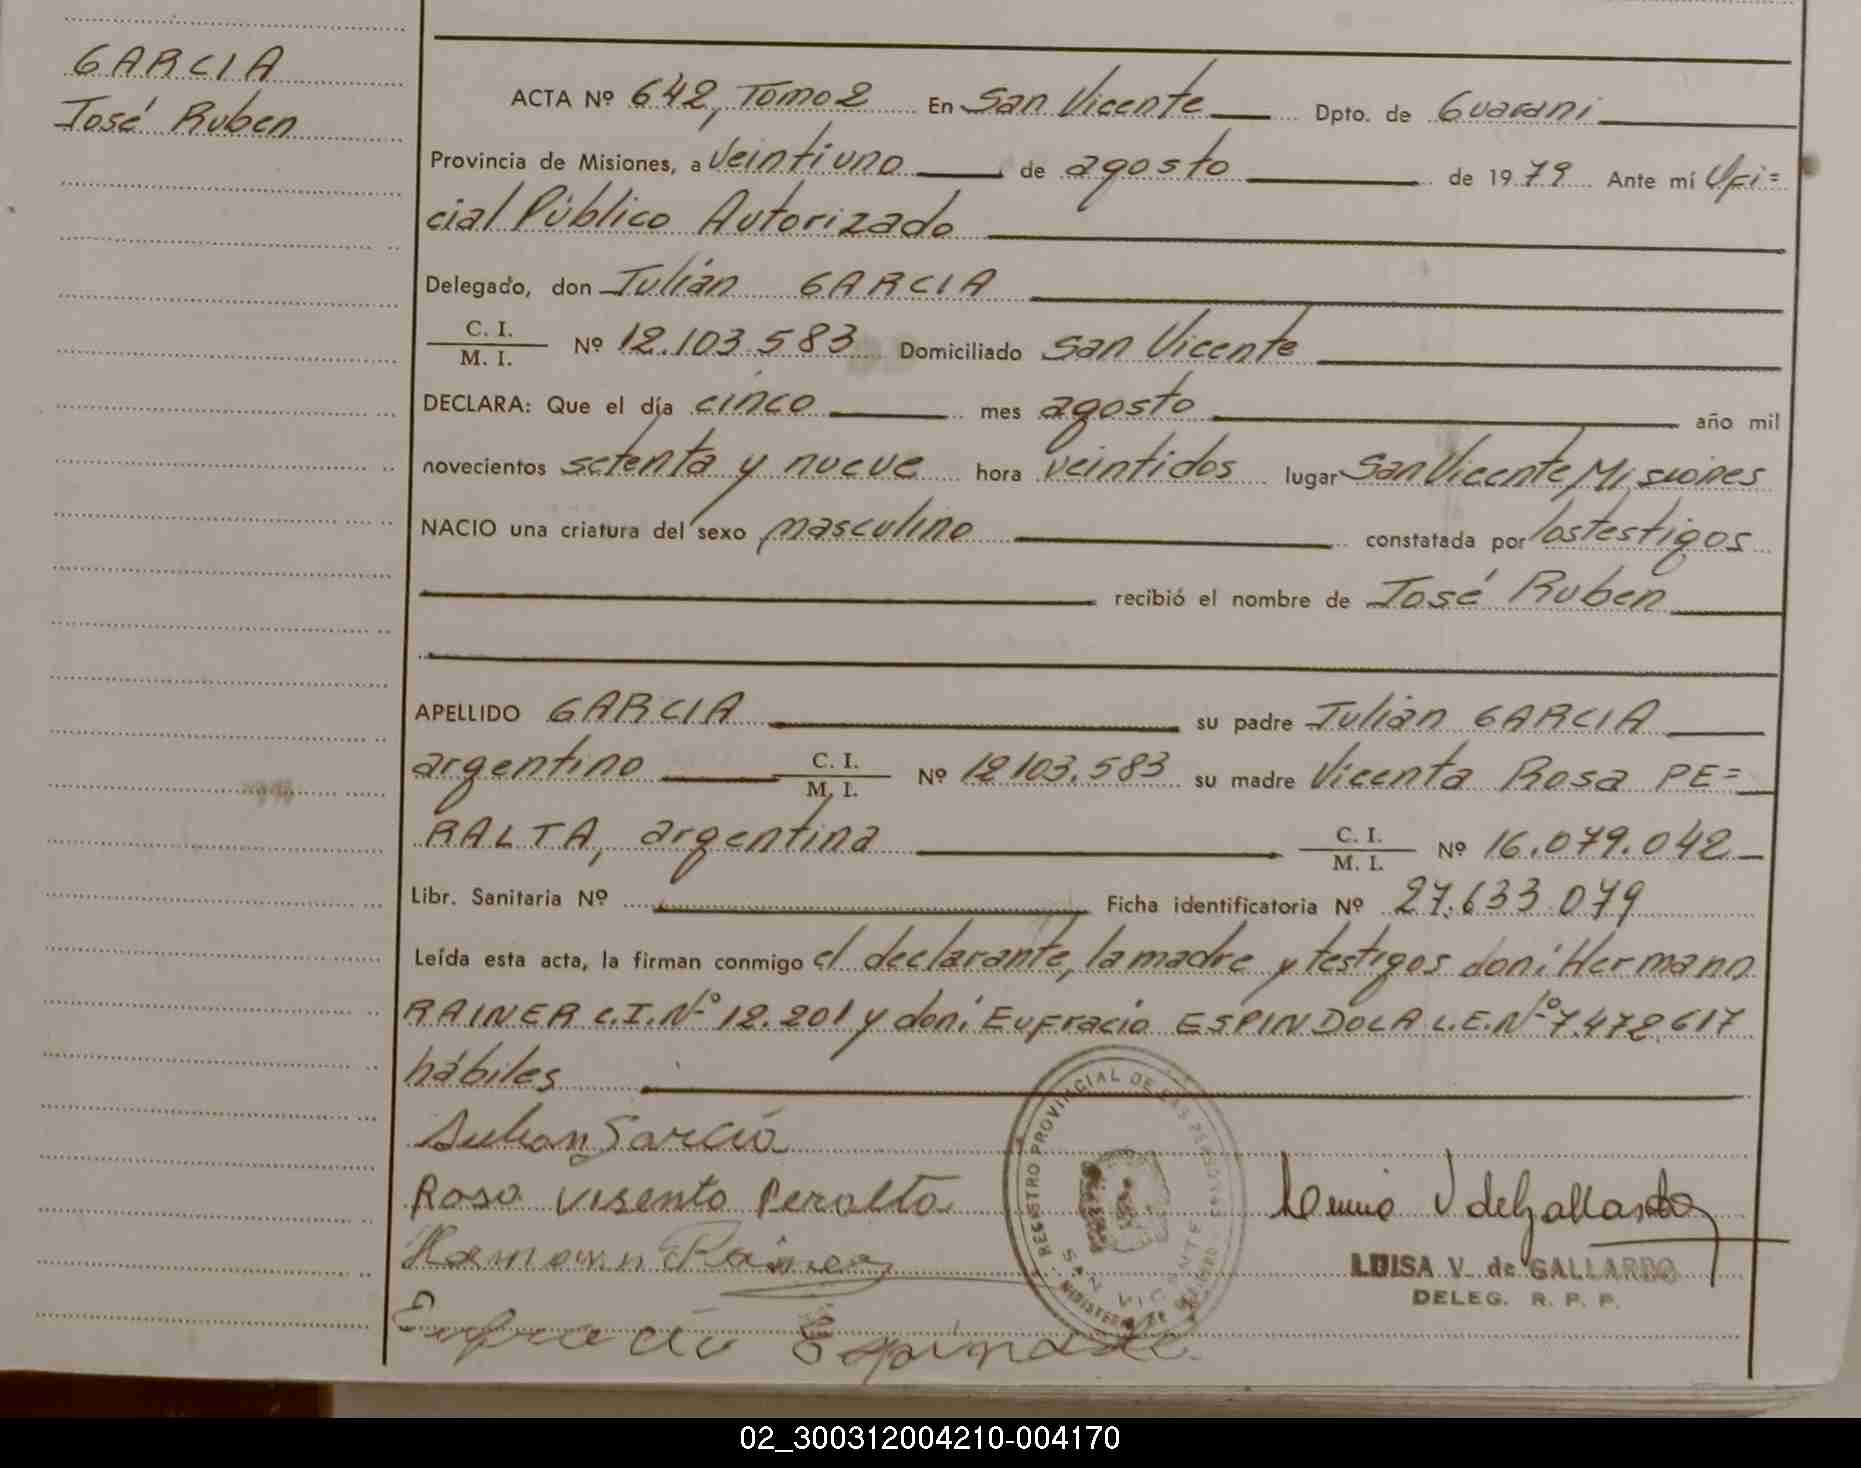 GARCIA
José Ruben
ACTA Nº 642, Tomo 2 En San Vicente Dpto. de Guarani
Provincia de Misiones, a veintiuno de agosto de 1979 Ante mí Ofi=
cial Público Autorizado
Delegado, don Julián GARCIA
C. I.
M. I. Nº 12.103.583 Domiciliado San Vicente
DECLARA: Que el día cinco mes agosto año mil
novecientos setenta y nueve hora veintidos lugar San Vicente, Misiones
NACIO una criatura del sexo masculino constatada por los testigos
recibió el nombre de José Ruben
APELLIDO GARCIA su padre Julián GARCIA
argentino C. I.
M. I. Nº 12.103.583 su madre Vicenta Rosa PE=
RALTA, argentina C. I.
M. I. Nº 16.079.042
Libr. Sanitaria Nº Ficha identificatoria Nº 27.633.079
Leída esta acta, la firman conmigo el declarante, la madre y testigos don: Hermann
RAINER C.I. Nº 12.201 y don: Eufracio ESPINDOLA L.E. Nº 7.472.617
hábiles
Julian Garcia
Rosa Visenta Peralta
Hermann Rainer
Eufracio Espindola
REGISTRO PROVINCIAL DE LAS PERSONAS
SAN VICENTE
MINISTERIO DE GOBIERNO
V de Gallardo
LUISA V. de GALLARDO
DELEG. R. P. P.
02_300312004210-004170